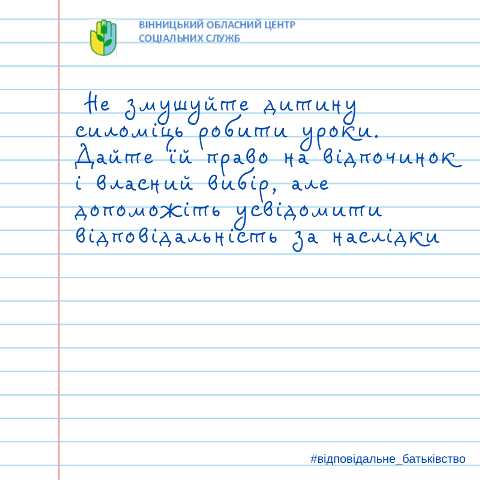 ВІННИЦЬКИЙ ОБЛАСНИЙ ЦЕНТР
СОЦІАЛЬНИХ СЛУЖБ
Не змушуйте дитину
силоміць робити уроки.
Дайте їй право на відпочинок
і власний вибір, але
допоможіть усвідомити
відповідальність за наслідки
#відповідальне_батьківство